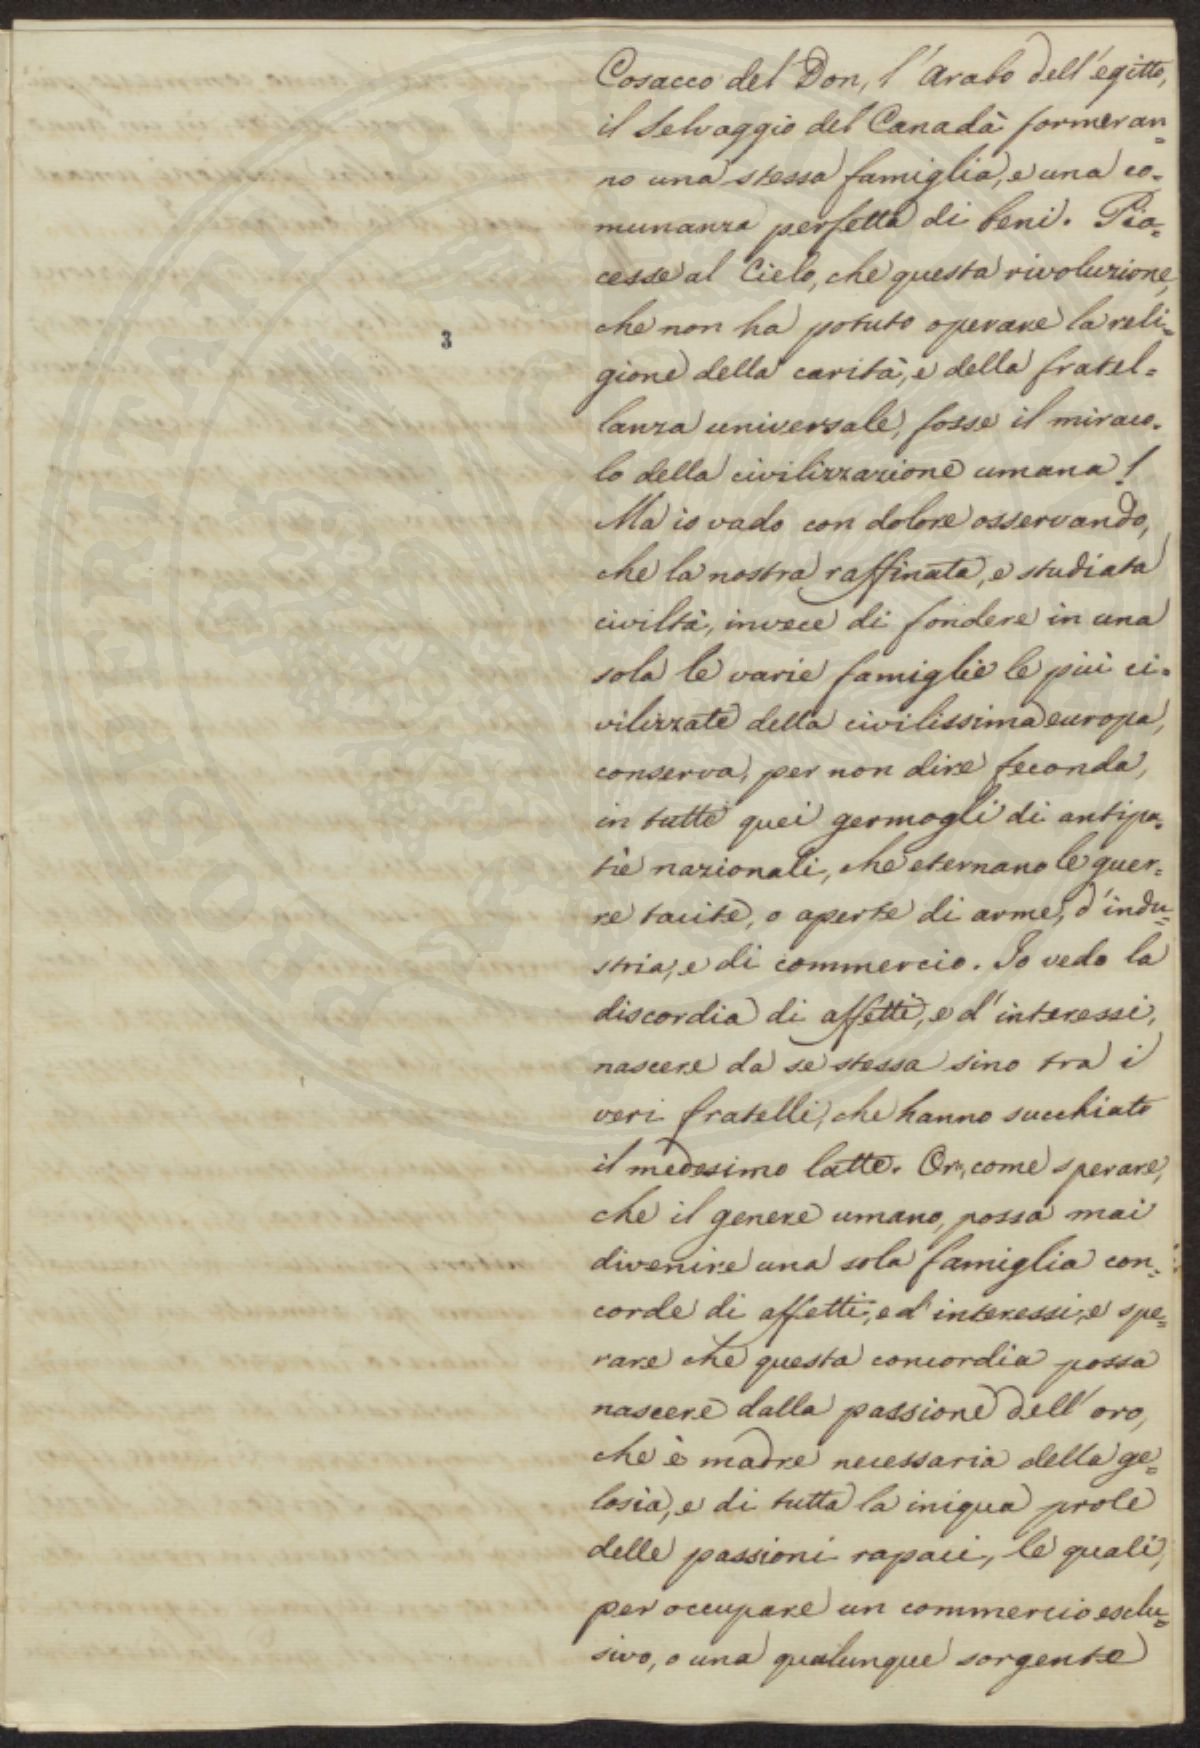 Cosacco del Don, l'Arabo dell'egitto,
il Selvaggio del Canadà formeran=
no una stessa famiglia, e una co=
munanza perfetta di beni. Pia=
cesse al Cielo, che questa rivoluzione,
che non ha potuto operare la reli=
gione della carità, e della fratel=
lanza universale, fosse il miraco=
lo della civilizzazione umana!
Ma io vado con dolore osservando,
che la nostra raffinata, e studiata
civiltà, invece di fondere in una
sola le varie famiglie le più ci=
vilizzate della civilissima europa,
conserva, per non dire feconda,
in tutte quei germogli di antipa=
tie nazionali, che eternano le guer=
re tacite, o aperte di arme, d'indu=
stria, e di commercio. Io vedo la
discordia di affetti, e d'interessi,
nascere da se stessa sino tra i
veri fratelli, che hanno succhiato
il medesimo latte. Or, come sperare,
che il genere umano, possa mai
divenire una sola famiglia con=
corde di affetti, e d'interessi, e spe=
rare che questa concordia possa
nascere dalla passione dell'oro,
che è madre necessaria della ge=
losia, e di tutta la iniqua prole
delle passioni rapaci, le quali,
per occupare un commercio esclu=
sivo, o una qualunque sorgente
3